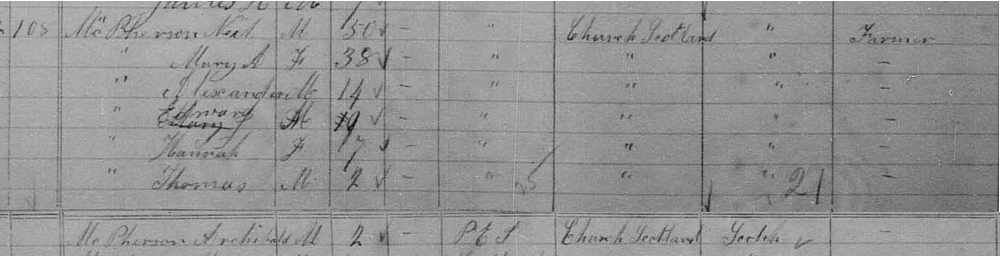 108 McPherson Neil M 50 - Church Scotland " Farmer
" Mary A F 38 - " " " -
" Alexander M 14 - " " " -
" Edward M 9 - " " " -
" Hannah F 7 - " " " -
" Thomas M 2 - " " " -
McPherson Archibald M 2 - P E I Church Scotland Scotch -